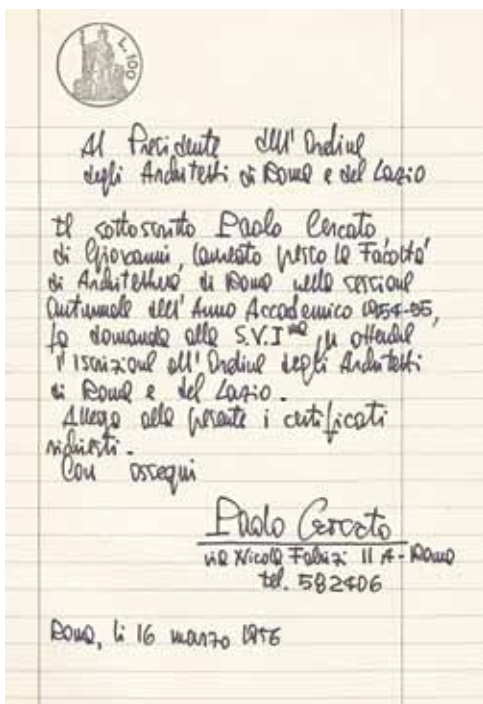 L. 100
Al Presidente dell'Ordine
degli Architetti di Roma e del Lazio
Il sottoscritto Paolo Cercato
di Giovanni, laureato presso la Facoltà
di Architettura di Roma nella sessione
autunnale dell'Anno Accademico 1954-55,
fa domanda alla S.V.Ima per ottenere
l'iscrizione all'Ordine degli Architetti
di Roma e del Lazio.
Allega alla presente i certificati
richiesti.
Con ossequi
Paolo Cercato
via Nicola Fabrizi 11 A - Roma
tel. 582406
Roma, li 16 marzo 1956